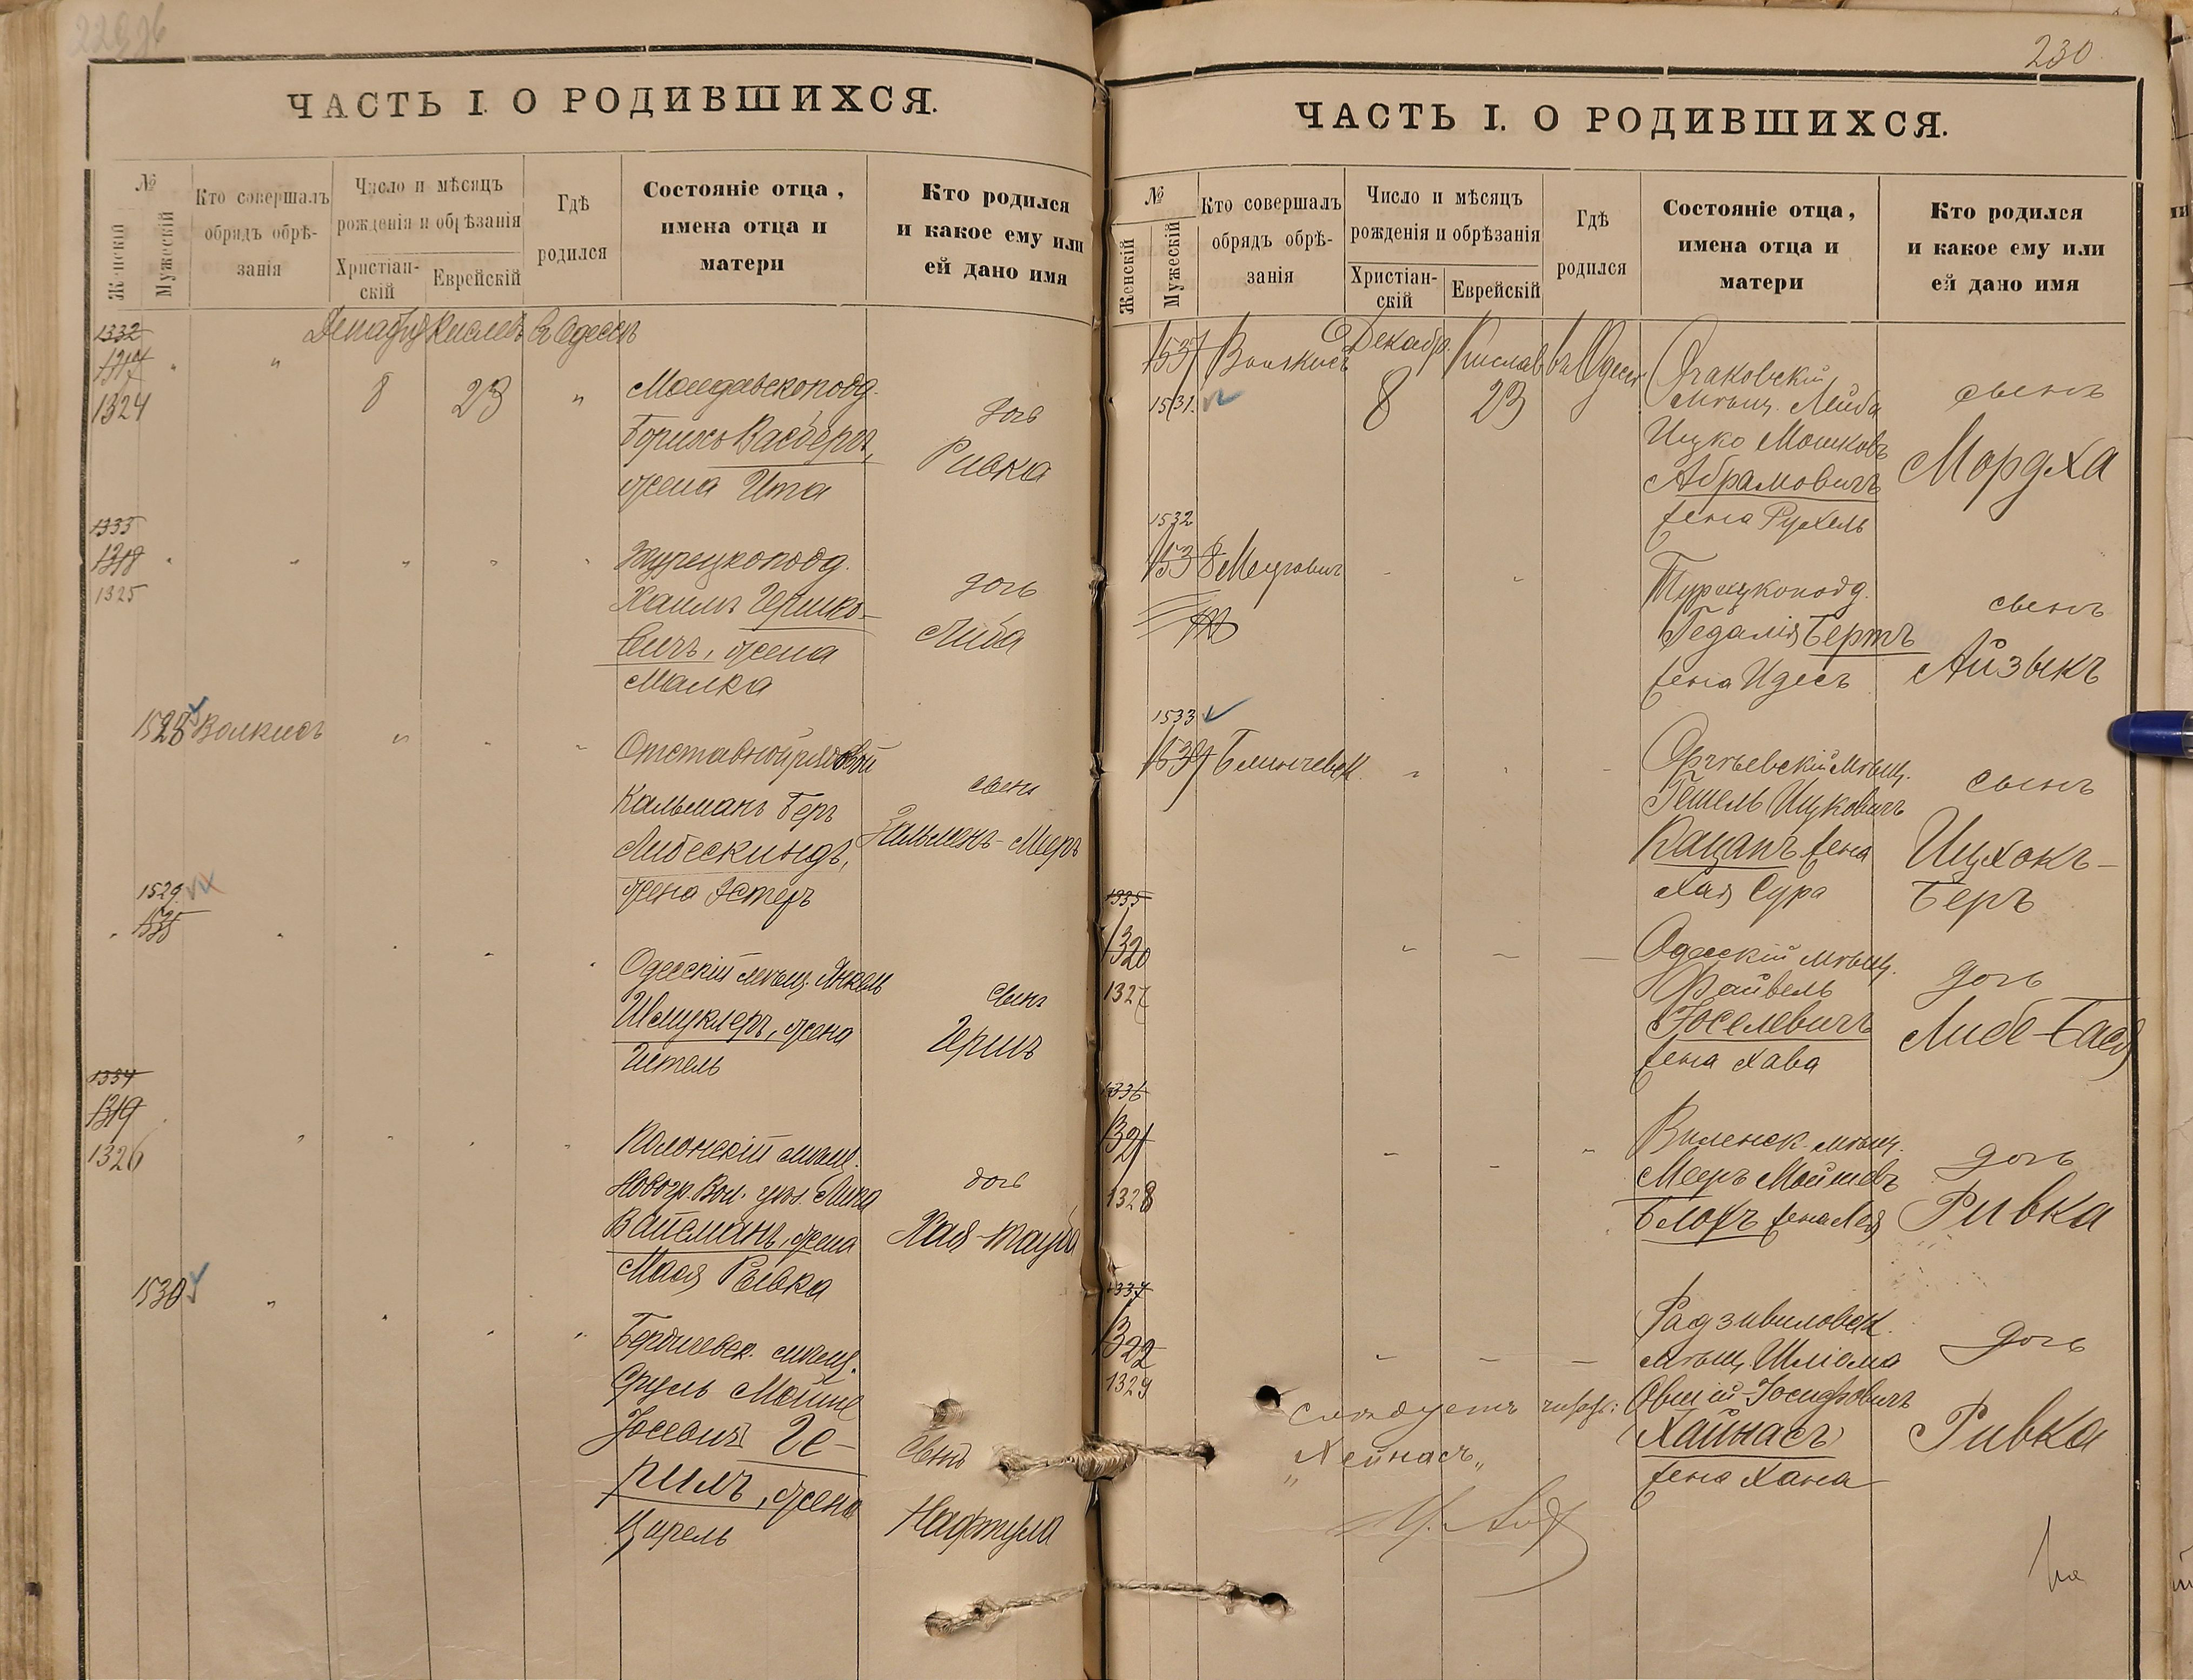 230.
ЧАСТЬ I. О РОДИВШИХСЯ.
№
Женскій
Мужескій
Кто совершалъ
обрядъ обрѣ-
занія
Число и мѣсяцъ
рожденія и обрѣзанія
Христіан-
скій
Еврейскій
Гдѣ
родился
Состояніе отца,
имена отца и
матери
Кто родился
и какое ему или
ей дано имя
Декабря Кислевъ Въ Одессѣ
1332
1317
1324
8 23 "
Молдавскоподд.
Борихъ Васбергъ,
жена Ита
дочь
Ривка
1333
1318
1325
Турецкоподд.
Хаимъ Гершко-
вичъ, жена
Малка
дочь
Либа
1528 Волкисъ
Отставной рядовой
Кальманъ Беръ
Либескиндъ,
жена Эстеръ
сынъ
Зальменъ-Мееръ
1529
1535
Одесскій мѣщ. Янкель
Шмуклеръ, жена
Гитель
сынъ
Гершъ
1334
1319
1326
Полонскій мѣщ.
Новогр. Вол. уѣз.
Вайсманъ, жена
Мася Ривка
дочь
Хая-Тауба
1530
Бердичевск. мѣщ.
Сруль Мойше
Іосевичъ Ге-
жена
Цирель
сынъ
Нафтула
ЧАСТЬ I. О РОДИВШИХСЯ.
№
Женскій
Мужескій
Кто совершалъ
обрядъ обрѣ-
занія
Число и мѣсяцъ
рожденія и обрѣзанія
Христіан-
скій
Еврейскій
Гдѣ
родился
Состояніе отца,
имена отца и
матери
Кто родился
и какое ему или
ей дано имя
1537 Волкисъ Декабр. Кислев въ Одессѣ
1531.
8 23
Очаковскій
мѣщ. Лейба
Ицко Мошковъ
Абрамовичъ
жена Рухель
сынъ
Мордха
1532
1538 Меировичъ
Турецкоподд.
Гедалія Бертъ
жена Идесъ
сынъ
Айзыкъ
1533
1539 Блинчевск.
Оргѣевскій мѣщ.
Гешель Ицковичъ
Кацапъ жена
Хая Сура
сынъ
Ицхокъ-
Беръ
1335
1320
1327
Одесскій мѣщ.
Файвель
Іоселевичъ
жена Хава
дочь
Либе-Бася
1336
1321
1328
Виленск. мѣщ.
Мееръ Мойшевъ
Блохъ жена Лея
дочь
Ривка
1337
1322
1329
Радзивиловск.
мѣщ. Шліома
Овшій-Іосифовичъ
Хайнасъ
жена Хана
дочь
Ривка
Слѣдуетъ читать:
"Хейнасъ"